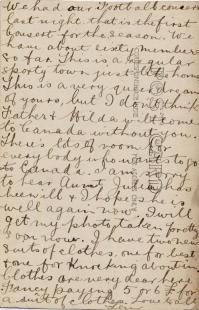 We had our Football concert
last night that is the first
concert for the season. We
have about sixty members
so far. This is a regular
sporty town just like home
This is a very queer dream
of yours, but I don't think
Father & Hilda will come
to Canada without you.
There's lots of room for
everybody who wants to go
to Canada. I am sorry
to hear Aunt Julia has
been ill & I hope she is
well again now. I will
get my photo taken pretty
soon now. I have two new
suits of clothes, one for best
& one for knocking about in.
Clothes are very dear here
Fancy paying 5 or 6 £ for
a suit of clothes. Love to all